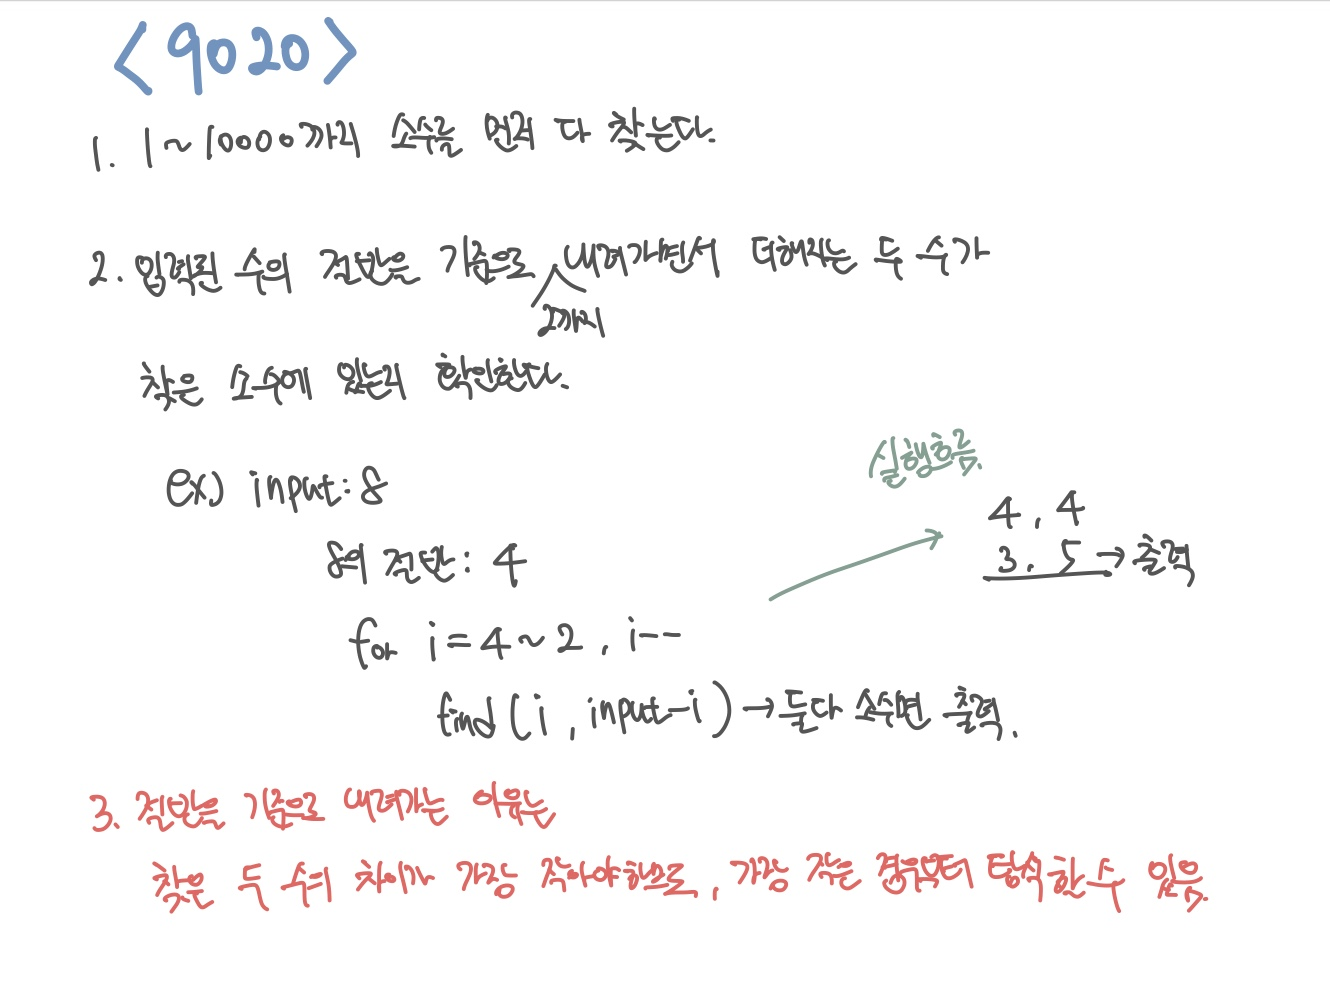 <9020>
1. 1~10000까지 소수를 먼저 다 찾는다.
2. 입력된 수의 절반을 기준으로 내려가면서 더해지는 두 수가
2까지
찾은 소수에 있는지 확인한다.
ex) input: 8
실행흐름.
4, 4
3, 5 → 출력
8의 절반: 4
for i = 4 ~ 2, i--
find(i, input-i) → 둘다 소수면 출력.
3. 절반을 기준으로 내려가는 이유는
찾은 두 수의 차이가 가장 작아야하므로, 가장 작은 경우부터 탐색할 수 있음.